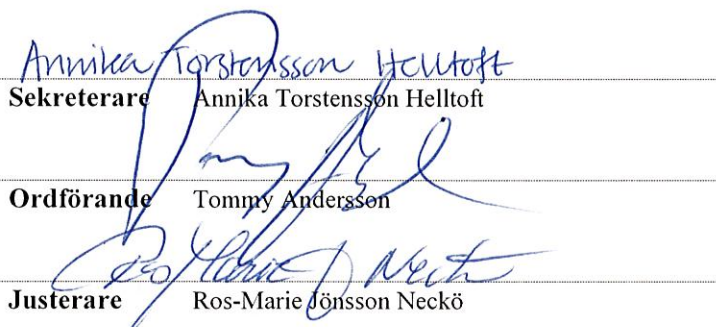 Annika Torstensson Helltoft
Sekreterare Annika Torstensson Helltoft
Ordförande Tommy Andersson
Ros Marie J Neckö
Justerare Ros-Marie Jönsson Neckö